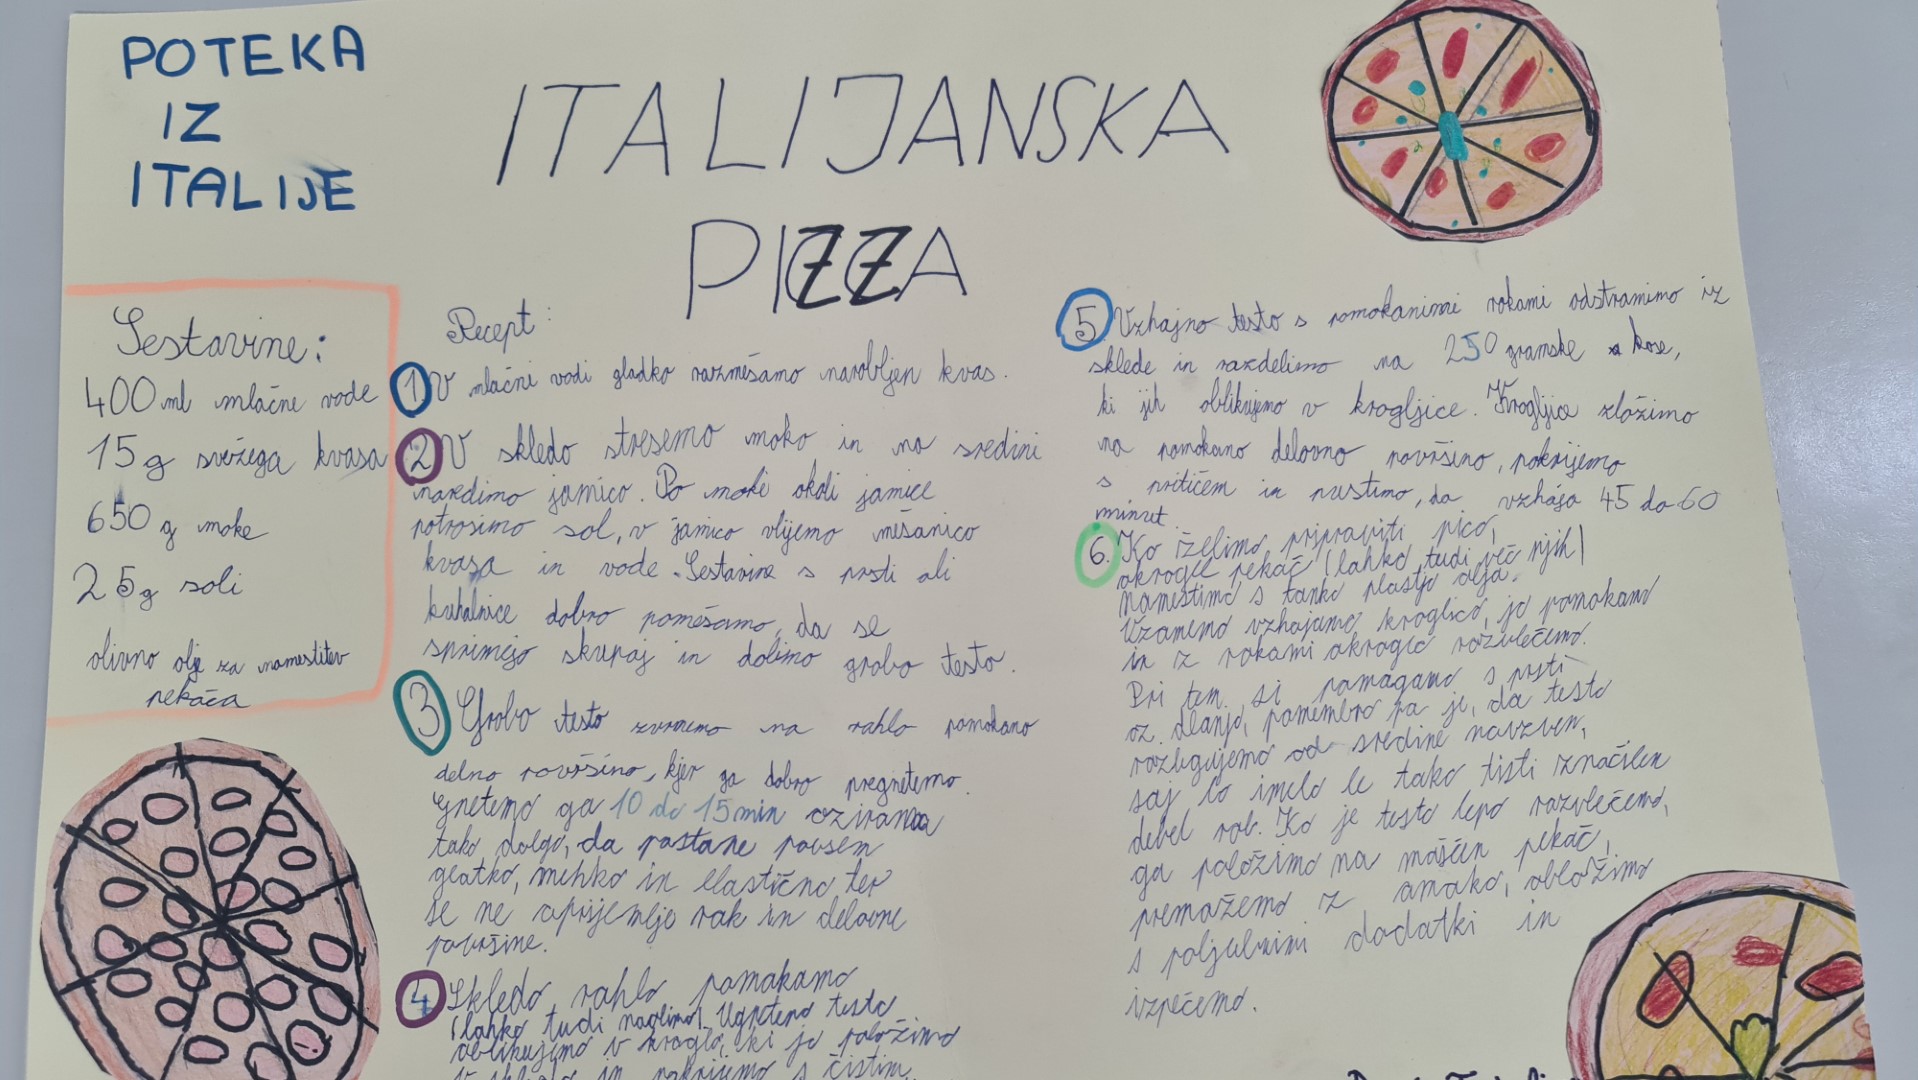 POTEKA
IZ
ITALIJE
ITALIJANSKA
PIZZA
Sestavine:
400 ml mlačne vode
15 g svežega kvasa
650 g moke
25 g soli
olivno olje za namestitev
pekáča
Recept:
1. V mlačni vodi gladko razmešamo narobljen kvas.
2. V skledo stresemo moko in na sredini
naredimo jamico. Po moki okoli jamice
potrosimo sol, v jamico vlijemo mešanico
kvasa in vode. Sestavine s prsti ali
kuhalnice dobro pomešamo, da se
sprimejo skupaj in dobimo grobo testo.
3 Grobo testo zvrnemo na rahlo pomokano
delno površino, kjer ga dobro pregnetemo.
Gnetemo ga 10 do 15 min oziroma
tako dolgo, da postane povsem
glatko, mehko in elastično ter
se ne oprijemlje rok in delovne
površine.
4 Skledo rahlo pomokamo
(lahko tudi naolimo). Ugneteno testo
oblikujemo v kroglo, ki jo položimo
v skledo in pokrijemo s čistim
5. Vzhajno testo s pomokanimi rokami odstranimo iz
sklede in razdelimo na 250 gramske kose,
ki jih oblikujemo v krogljice. Krogljice zložimo
na pomokano delovno površino, pokrijemo
s prtičem in pustimo, da vzhaja 45 do 60
minut.
6. Ko želimo pripraviti pico,
okrogel pekač (lahko tudi več njih)
namestimo s tanko plastjo olja.
Vzamemo vzhajano kroglico, jo pomokamo
in z rokami okroglo razvlečemo.
Pri tem si pomagamo s prsti
oz. dlanjo, pomembno pa je, da testo
razlegujemo od sredine navzven,
saj bo imelo le tako tisti značilen
debel rob. Ko je testo lepo razvlečemo,
ga položimo na maščen pekač,
premažemo z omako, obložimo
s poljubnimi dodatki in
izpečemo.